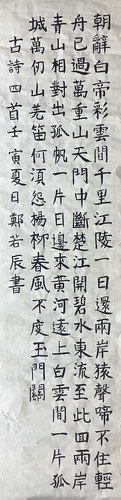 朝辭白帝彩雲間千里江陵一日還兩岸猿聲啼不住輕
舟已過萬重山天門中斷楚江開碧水東流至此回兩岸
青山相對出孤帆一片日邊來黃河遠上白雲間一片孤
城萬仞山羌笛何須怨楊柳春風不度玉門關
古詩四首壬寅夏日鄭若辰書